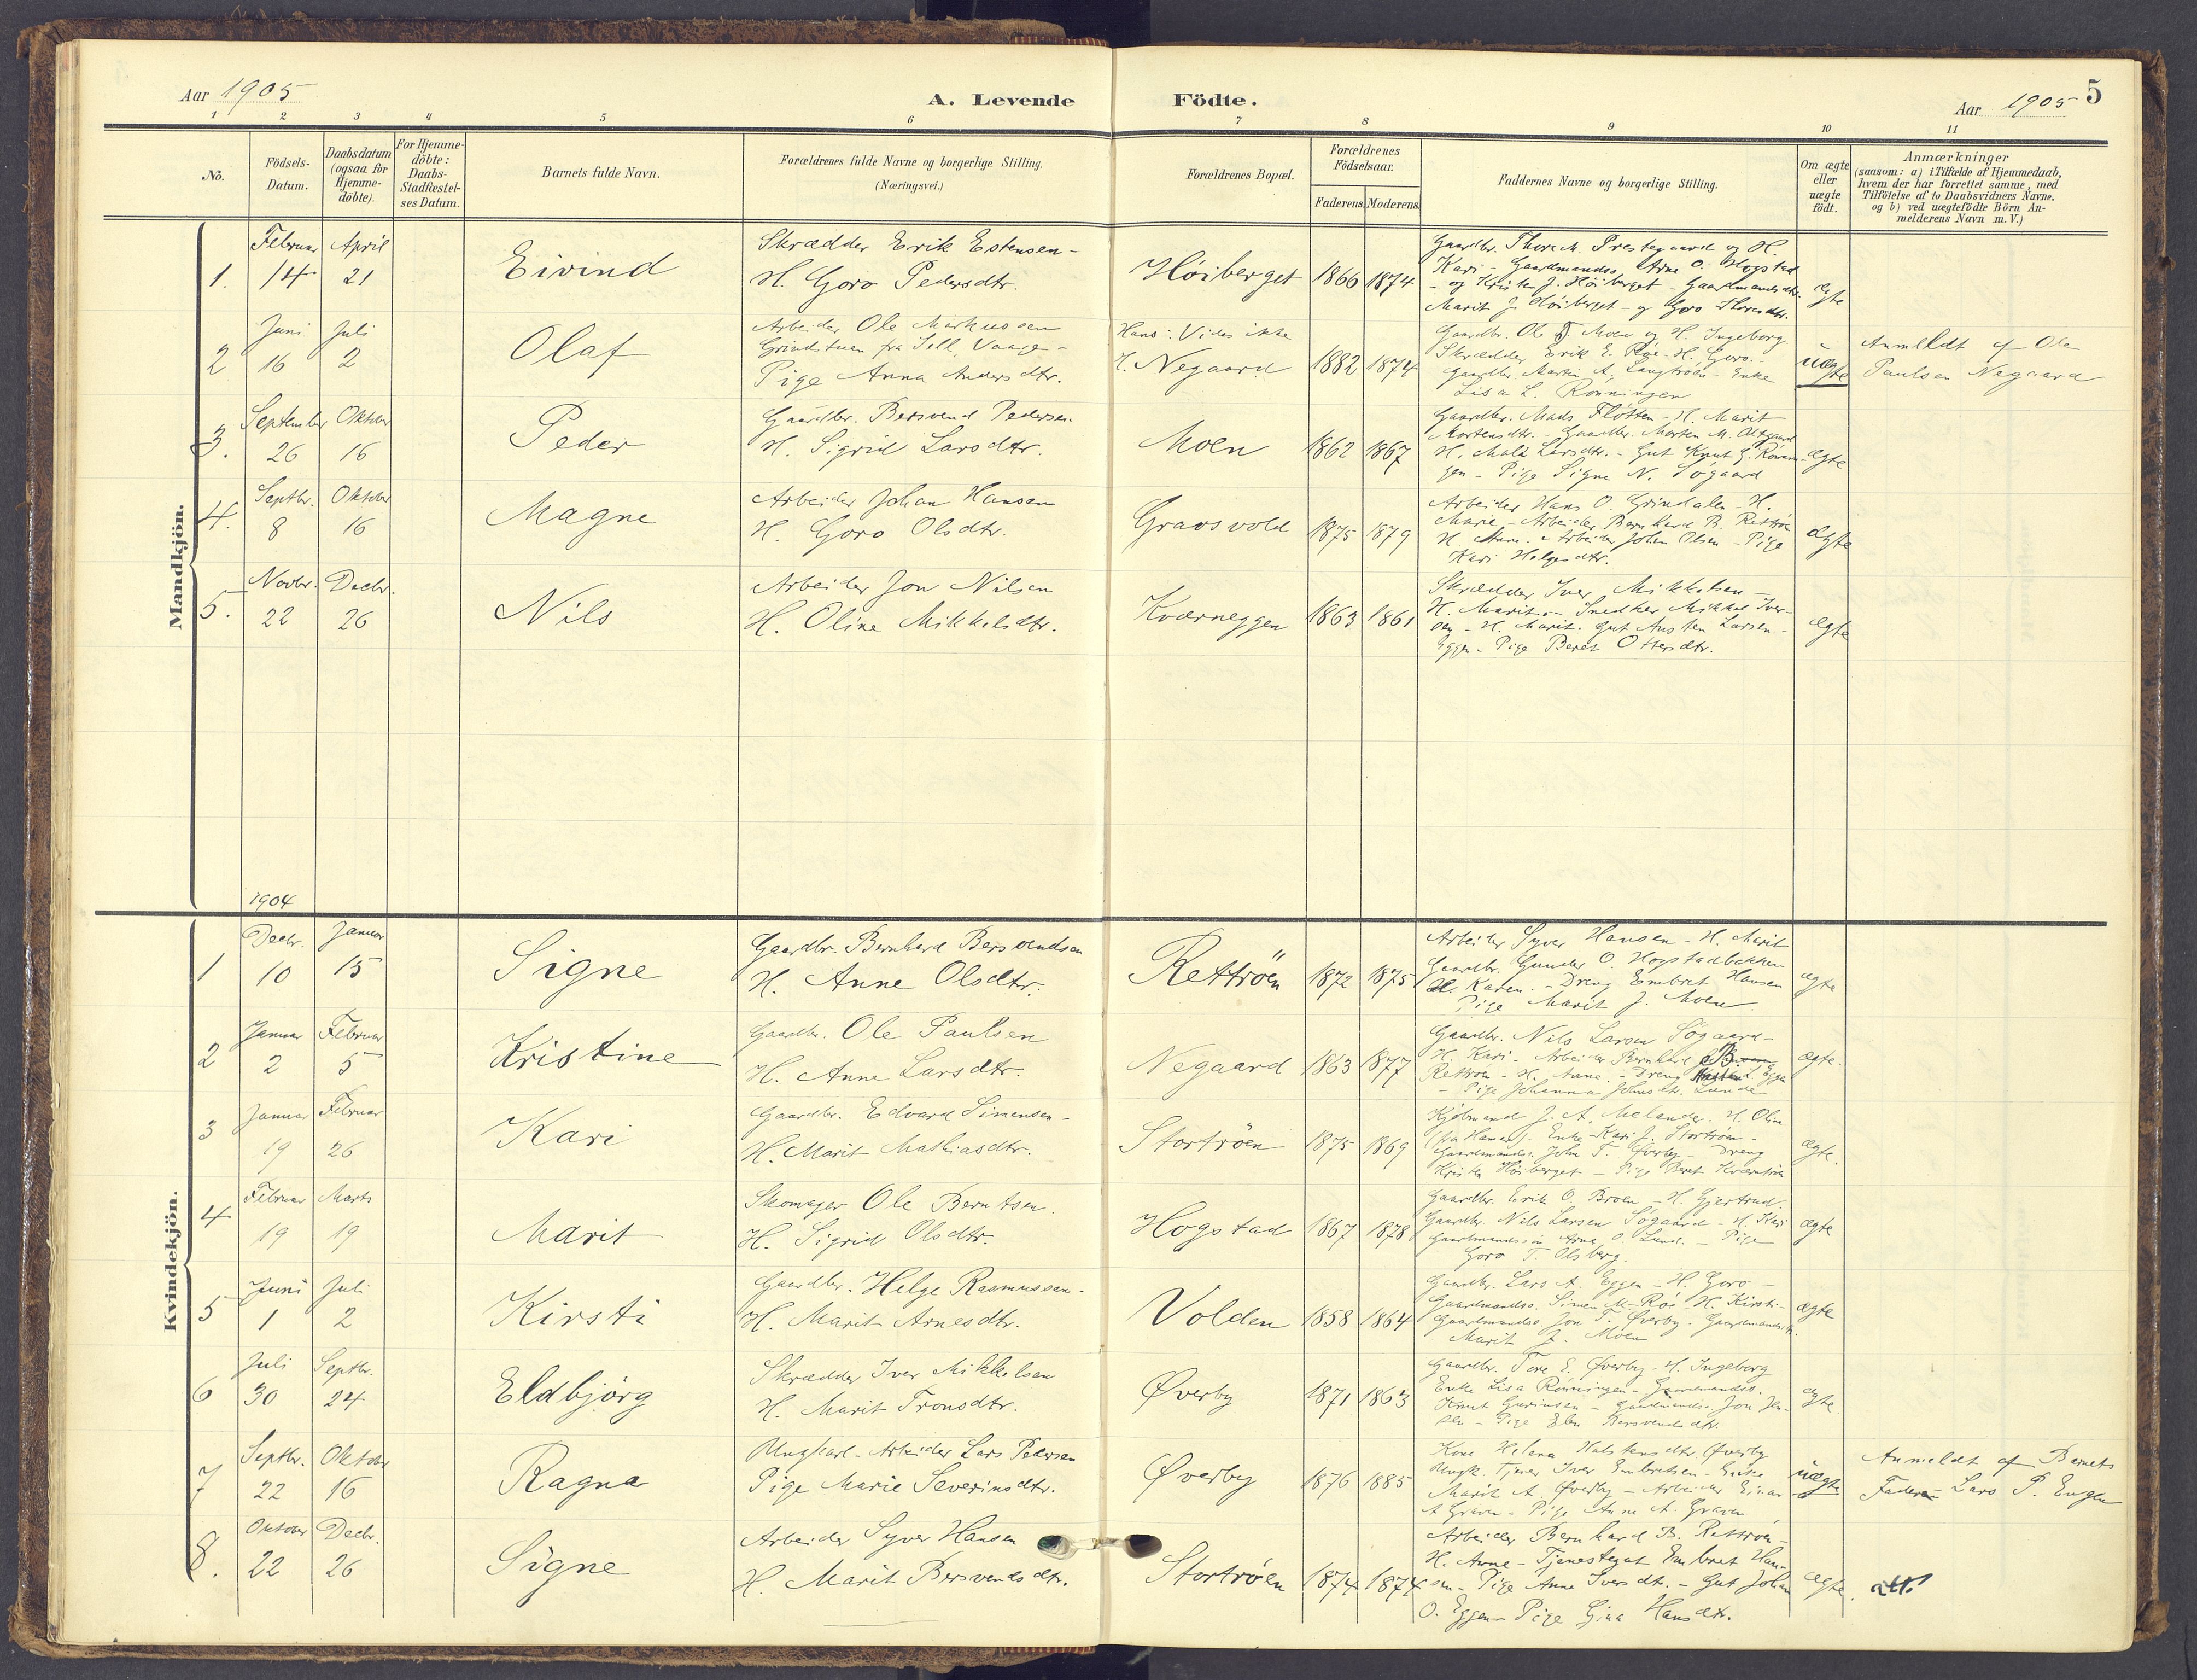 Aar 1905
A. Levende Födte.
Aar 1905
5
1 2 3 4 5 6 7 8 9 10 11
No.
Födsels-
Datum.
Daabsdatum
(ogsaa for
Hjemme-
döbte).
For Hjemme-
döbte:
Daabs-
Stadfæstel-
ses Datum.
Barnets fulde Navn.
Forældrenes fulde Navne og borgerlige Stilling.
(Næringsvei.)
Forældrenes Bopæl.
Forældrenes
Födselsaar.
Faderens. Moderens.
Faddernes Navne og borgerlige Stilling.
Om ægte
eller
uægte
födt.
Anmærkninger
(saasom: a) i Tilfælde af Hjemmedaab,
hvem der har forrettet samme, med
Tilföielse af to Daabsvidners Navne.
og b) ved uægtefödte Börn An-
melderens Navn m. V.)
Mandkjön.
1.
Februar
14
April
21
Eivind
Skrædder Erik Estensen -
H. Goro Pedersdtr.
Höiberget
1866
1874
Gaardbr. Thore M. Prestegaard og H.
Kari - Gaardmandss. Arne O. Hogstad
- og Kristen J. Höiberget - Gaardmandsdtr.
Marit J. Höiberget - og Goro Thoresdtr.
ægte
2
Juni
16
Juli
2
Olaf
Arbeider Ole Markussen
Grindstuen fra Sell, Vaage -
Pige Anna Andersdtr.
Hans: Vides ikke
H. Negaard
1882
1874
Gaardbr. Ole J. Moen og H. Ingeborg.
Skrædder Erik E. Röe - H. Goro. -
Gaardbr. Martin A. Langtröen - Enke
Lisa L. Rönningen
uægte
Anmeldt af Ole
Paulsen Negaard
3.
September
26
Oktober
16
Peder
Gaardbr. Bersvend Pedersen
H. Sigrid Larsdtr.
Moen
1862
1867
Gaardbr. Mads Flötten - H. Marit
Mortensdtr. - Gaardbr. Morten M.
H. Larsdtr. - Gut Knut G. Rönnin-
gen - Pige Signe N. Søgaard
ægte
4.
Septbr.
8
Oktober
16
Magne
Arbeider Johan Hansen
H. Goro Olsdtr.
Graosvold
1875
1879
Arbeider Hans O. Grindalen - H.
Marie - Arbeider Bernhard B. Rettröen
H. Anne. - Arbeider Johan Olsen - Pige
Kari Helgesdtr.
ægte
5.
Novbr.
22
Decbr.
26
Nils
Arbeider Jon Nilsen
H. Oline Mikkelsdtr.
Kværneggen
1863
1861
Skrædder Iver Mikkelsen -
H. Marit - Snedker Mikkel Iver-
sen - H. Marit. Gut Austen Larsen -
Eggen - Pige Beret Ottersdtr.
ægte
Kvindekjön.
1904
1
Decbr.
10
Januar
15
Signe
Gaardbr. Bernhard Bersvendsen
H. Anne Olsdtr.
Rettröen
1872
1875
Arbeider Syver Hansen - H. Marit
Gaardbr. Gunder O. Hogstadbakken
H. Karen. - Dreng Embret Hansen
Pige Marit J. Moen.
ægte
2
Januar
2
Februar
5
Kristine
Gaardbr. Ole Paulsen
H. Anne Larsdtr.
Negaard
1863
1877
Gaardbr. Nils Larsen Søgaard -
H. Kari - Arbeider Bernhard B.
Rettröen - H. Anne. - Dreng L. Eggen
- Pige Johanna Johnsdtr. Lunde
ægte.
3
Januar
19
Februar
26
Kari
Gaardbr. Edvard Simensen -
H. Marit Mathiasdtr.
Stortröen
1875
1869
Kjöbmand J. A. Melander. H. Oline
(fra Hamar). Enke Kari J. Stortröen -
Gaardmandss. John T. Øverby - Dreng
Kristen Höiberget - Pige Beret
ægte.
4
Februar
19
Marts
19
Marit
Skomager Ole Berntsen.
H. Sigrid Olsdtr.
Hogstad
1867
1878
Gaardbr. Erik O. Broen - H. Gjertrud.
Gaardbr. Nils Larsen Søgaard - H. Kari
Gaardmandssön Arne O. Lund. - Pige
Goro T. Olsberg.
ægte
5
Juni
1
Juli
2
Kirsti
Gaardbr. Helge Rasmussen.
H. Marit Arnesdtr.
Volden
1858
1864
Gaardbr. Lars A. Eggen - H. Goro -
Gaardmandss. Simen M. Röe - H. Kirsti -
Gaardmandss. Jon T. Øverby. Gaardmandsdtr.
Marit J. Moen
ægte
6
Juli
30
Septbr.
24
Eldbjörg
Skrædder Iver Mikkelsen
H. Marit Tronsdtr.
Øverby
1871
1863
Gaardbr. Tore E. Øverby - H. Ingeborg
Enke Lisa Rönningen - Gaardmandss.
Knut - Gaardmandss. Jon Jen-
sen - Pige Elen Bersvendsdtr.
ægte
7
Septbr.
22
Oktober
16
Ragna
Ungkarl - Arbeider Lars Pedersen
Pige Marie Severinsdtr.
Øverby
1876
1885
Kone Helena Halstensdtr. Øverby
Ungk. Tjener Iver Embretsen - Enke
Marit A. Øverby - Arbeider Einar
A. Graven - Pige Anne A. Graven.
uægte
Anmeldt af Barnets
Fader Lars P. Engen
8.
Oktober
22
Decbr.
26
Signe
Arbeider Syver Hansen
H. Marit Bersvendsdtr.
Stortröen
1874
1874
Arbeider Bernhard B. Rettröen -
H. Anne - Tjenestegut Embret Han-
sen - Pige Anne Iversdt. - Gut Johan
O. Eggen - Pige Gina Hansdtr.
ægte.